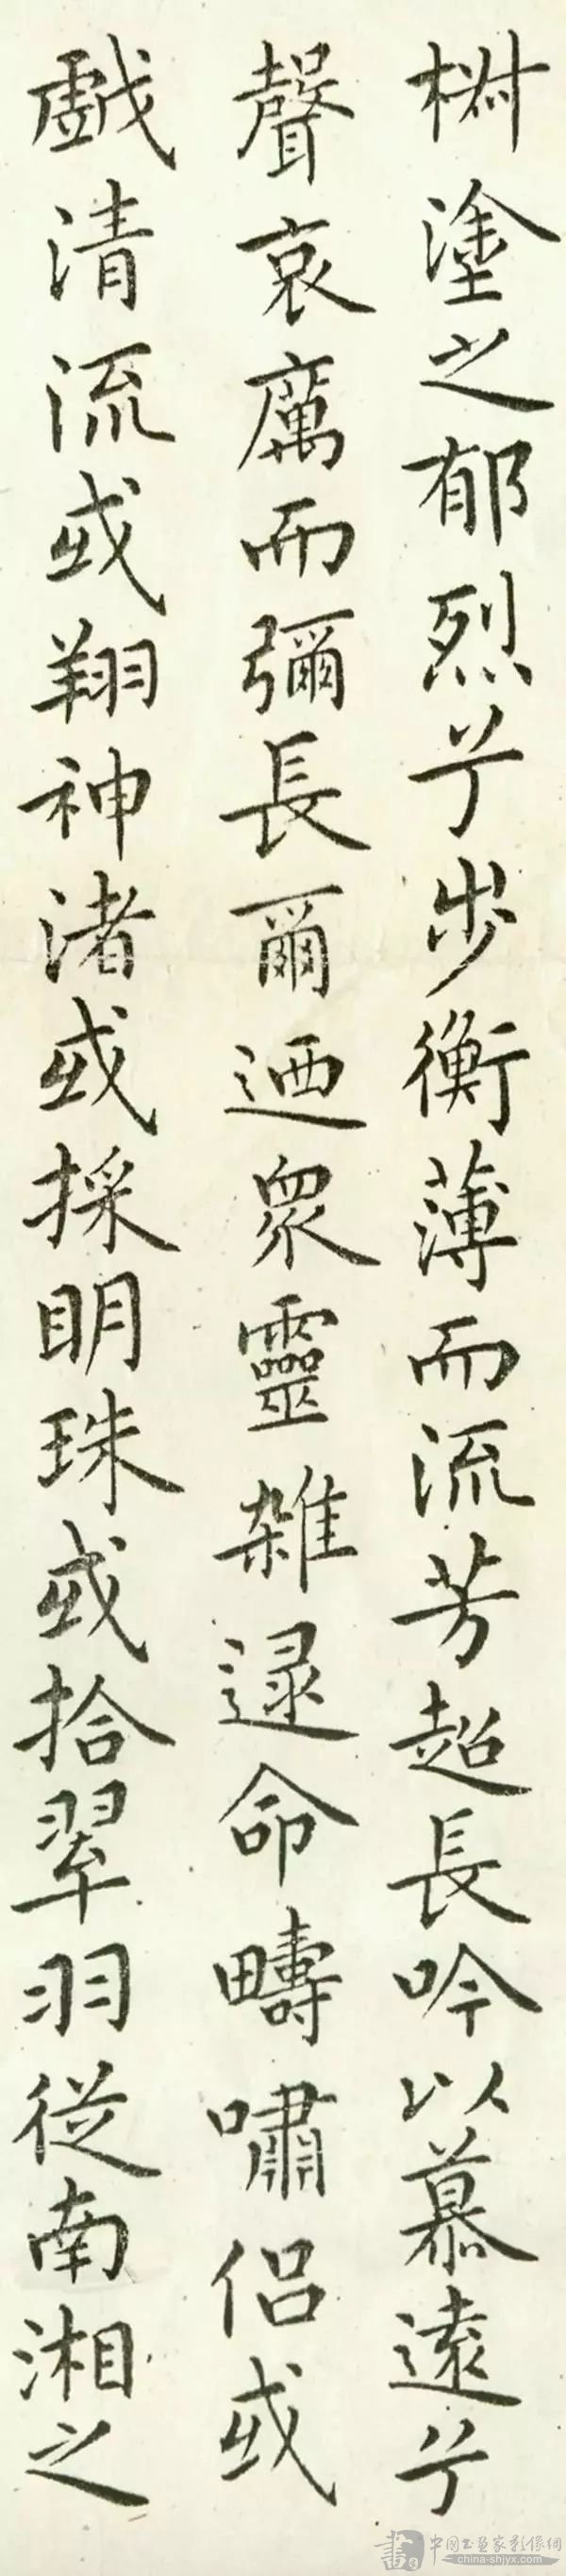 椒塗之郁烈兮步衡薄而流芳超長吟以慕遠兮
聲哀厲而彌長爾迺眾靈雜遝命疇嘯侶或
戲清流或翔神渚或採明珠或拾翠羽從南湘之
china-shjyx.com